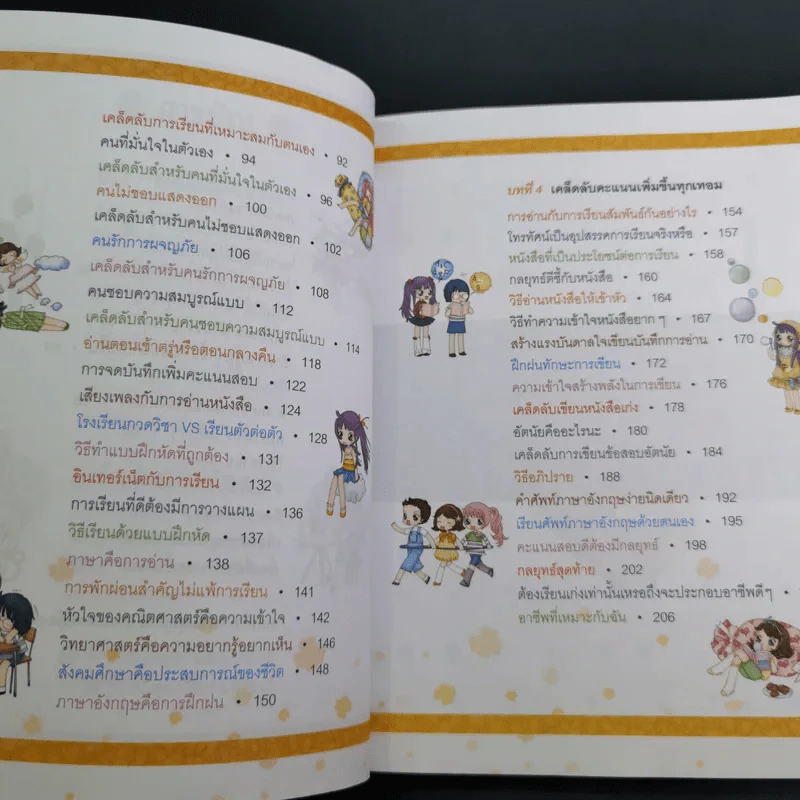 เคล็ดลับการเรียนที่เหมาะสมกับตนเอง • 92
คนที่มั่นใจในตัวเอง • 94
เคล็ดลับสำหรับคนที่มั่นใจในตัวเอง • 96
คนไม่ชอบแสดงออก • 100
เคล็ดลับสำหรับคนไม่ชอบแสดงออก • 102
คนรักการผจญภัย • 106
เคล็ดลับสำหรับคนรักการผจญภัย • 108
คนชอบความสมบูรณ์แบบ • 112
เคล็ดลับสำหรับคนชอบความสมบูรณ์แบบ • 114
อ่านตอนเช้าตรู่หรือตอนกลางคืน • 118
การจดบันทึกเพิ่มคะแนนสอบ • 122
เสียงเพลงกับการอ่านหนังสือ • 124
โรงเรียนกวดวิชา VS เรียนตัวต่อตัว • 128
วิธีทำแบบฝึกหัดที่ถูกต้อง • 131
อินเทอร์เน็ตกับการเรียน • 132
การเรียนที่ดีต้องมีการวางแผน • 136
วิธีเรียนด้วยแบบฝึกหัด • 137
ภาษาคือการอ่าน • 138
การพักผ่อนสำคัญไม่แพ้การเรียน • 141
หัวใจของคณิตศาสตร์คือความเข้าใจ • 142
วิทยาศาสตร์คือความอยากรู้อยากเห็น • 146
สังคมศึกษาคือประสบการณ์ของชีวิต • 148
ภาษาอังกฤษคือการฝึกฝน • 150
บทที่ 4 เคล็ดลับคะแนนเพิ่มขึ้นทุกเทอม
การอ่านกับการเรียนสัมพันธ์กันอย่างไร • 154
โทรทัศน์เป็นอุปสรรคการเรียนจริงหรือ • 157
หนังสือที่เป็นประโยชน์ต่อการเรียน • 158
กลยุทธ์ตีซี้กับหนังสือ • 160
วิธีอ่านหนังสือให้เข้าหัว • 164
วิธีทำความเข้าใจหนังสือยาก ๆ • 167
สร้างแรงบันดาลใจเขียนบันทึกการอ่าน • 170
ฝึกฝนทักษะการเขียน • 172
ความเข้าใจสร้างพลังในการเขียน • 176
เคล็ดลับเขียนหนังสือเก่ง • 178
อัตนัยคืออะไรนะ • 180
เคล็ดลับการเขียนข้อสอบอัตนัย • 184
วิธีอภิปราย • 188
คำศัพท์ภาษาอังกฤษง่ายนิดเดียว • 192
เรียนศัพท์ภาษาอังกฤษด้วยตนเอง • 195
คะแนนสอบดีต้องมีกลยุทธ์ • 198
กลยุทธ์สุดท้าย • 202
ต้องเรียนเก่งเท่านั้นเหรอถึงจะประกอบอาชีพดีๆ •
อาชีพที่เหมาะกับฉัน • 206